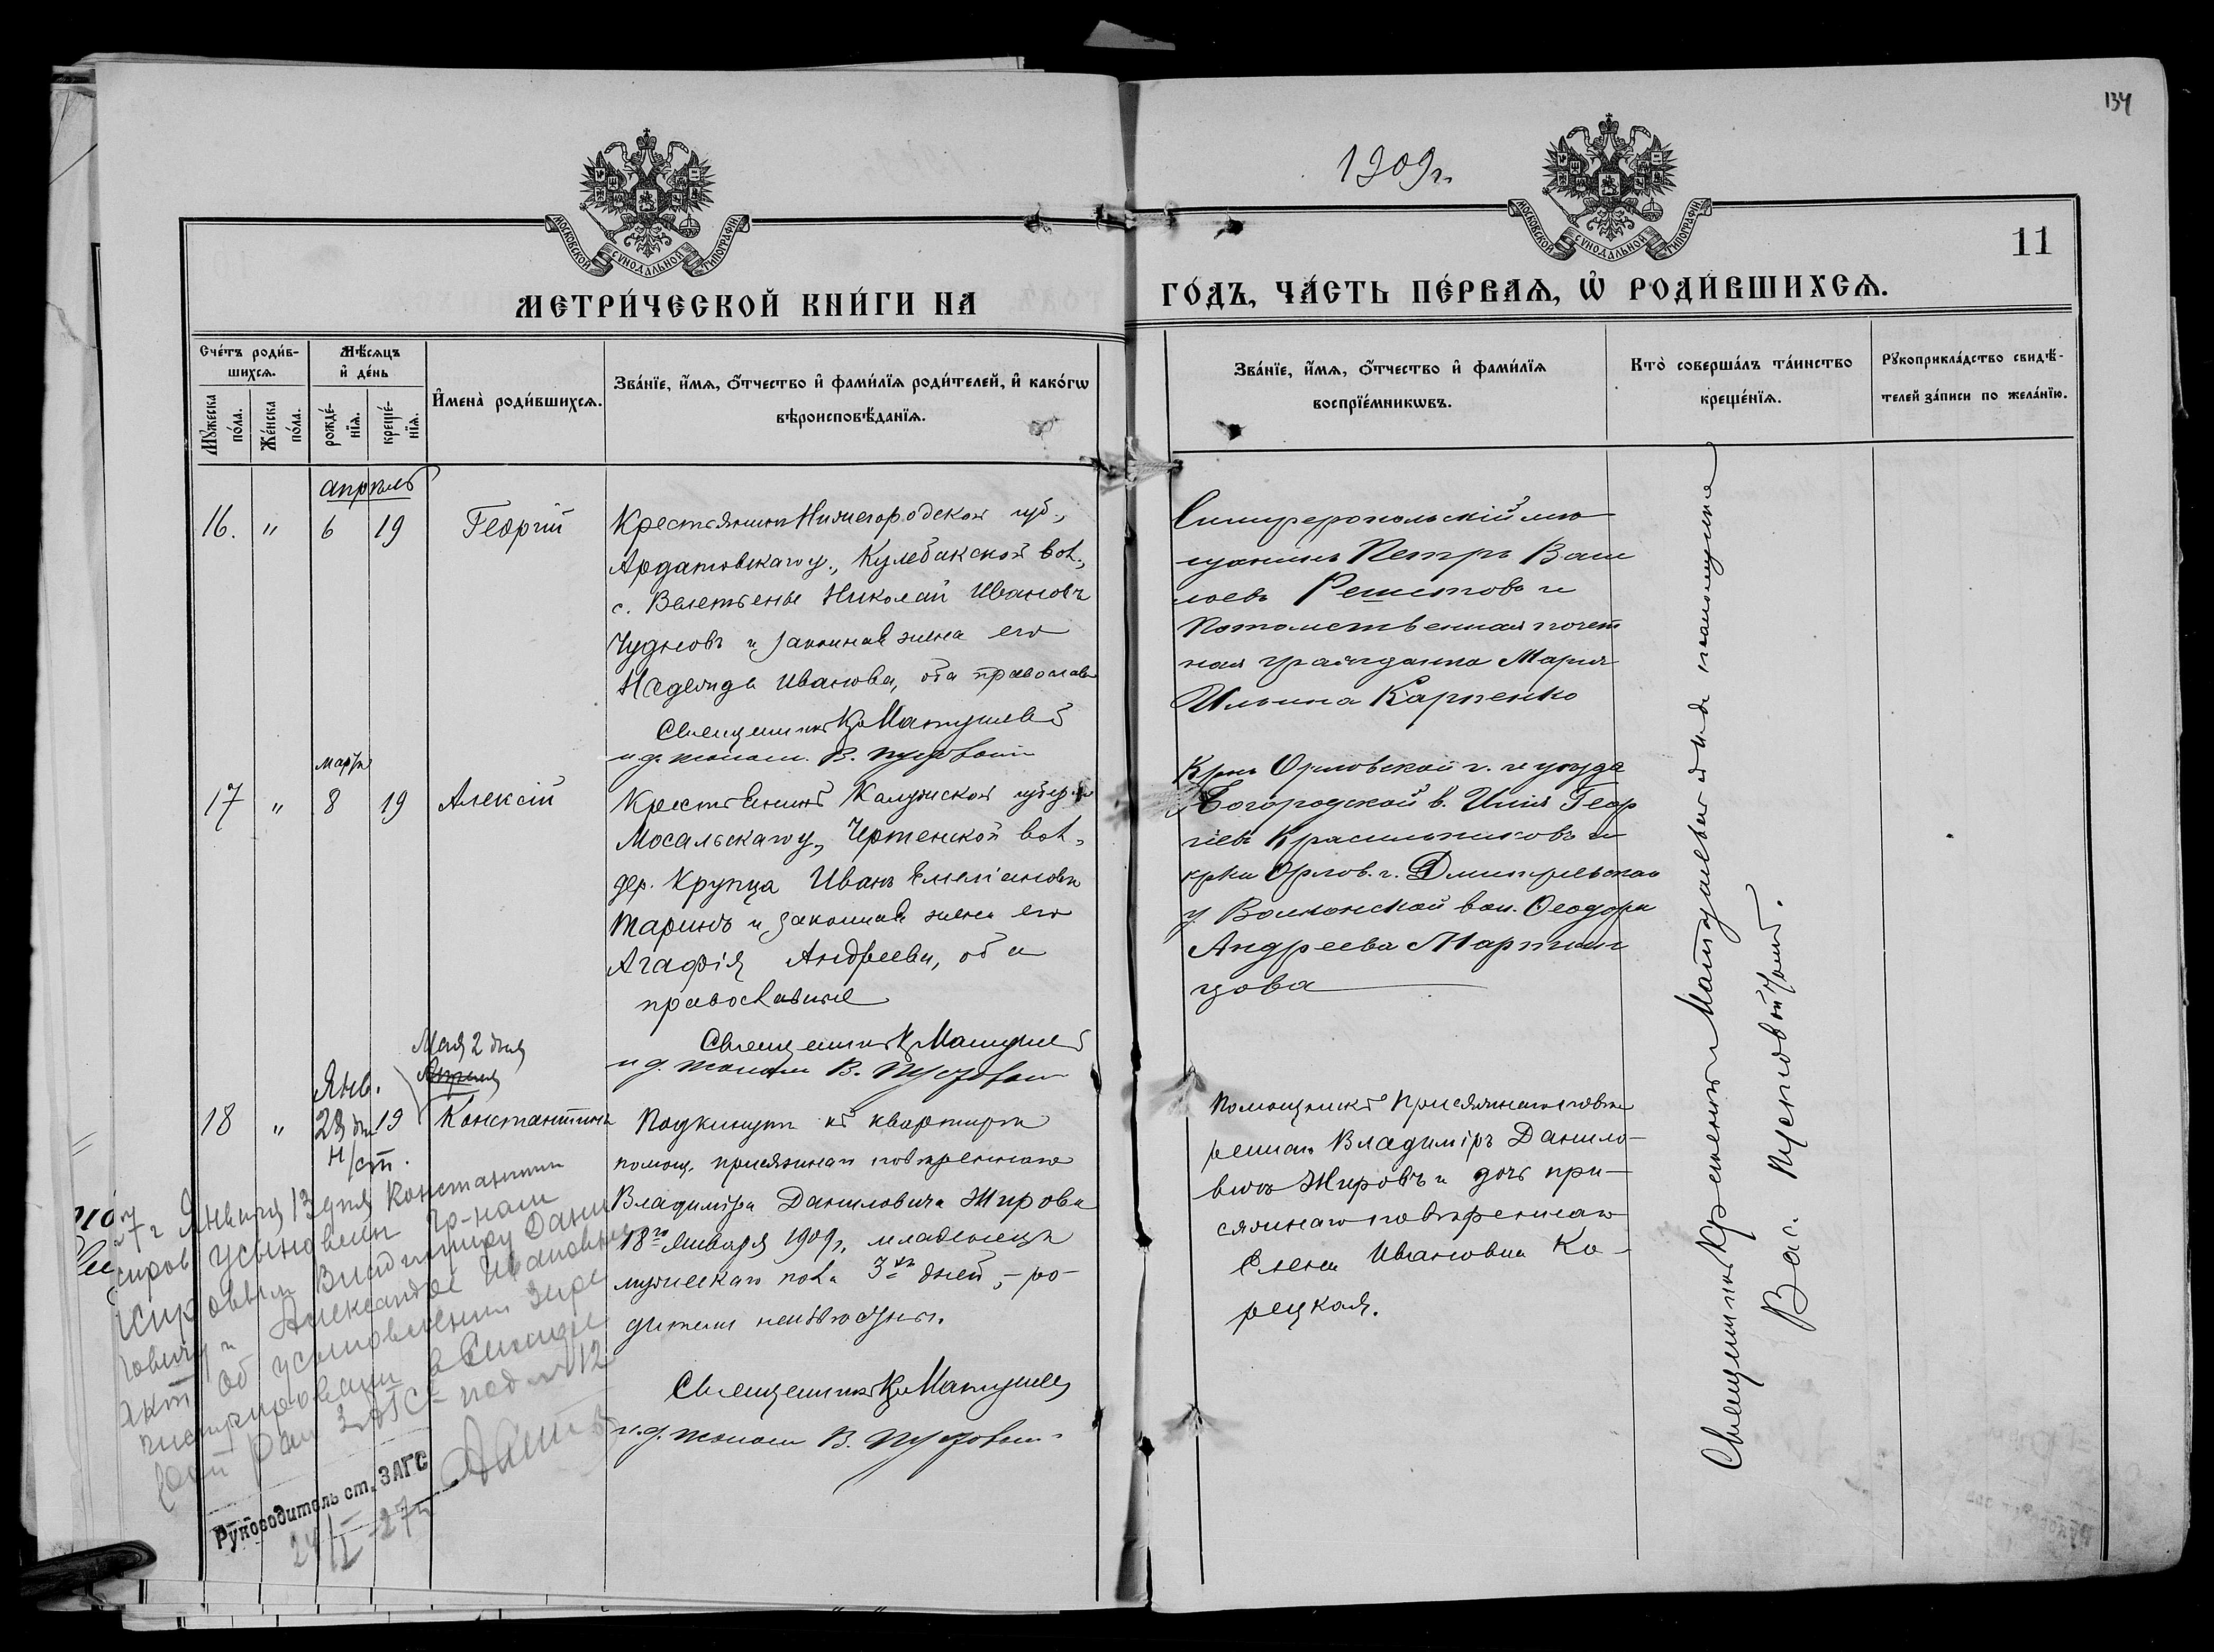 134
1909 г.
МОСКОВСКОЙ СѴНОДАЛЬНОЙ ТИПОГРАФІИ
МОСКОВСКОЙ СѴНОДАЛЬНОЙ ТИПОГРАФІИ
11
МЕТРИ́ЧЕСКОЙ КНИ́ГИ НА
ГО́ДЪ, ЧА́СТЬ ПЕ́РВАѦ, Ѡ҆ РОДИ́ВШИХСѦ.
Сче́тъ роди́в-
шихсѧ.
Мꙋ́жеска по́ла.
Же́нска по́ла.
Мѣ́сѧцъ
и҆ де́нь
рожде́-
нїѧ.
креще́-
нїѧ.
И҆мена̀ роди́вшихсѧ.
Зва́нїе, и҆́мѧ, ѻ҆́тчество и҆ фами́лїѧ роди́телей, и҆ како́гѡ
вѣроисповѣ́данїѧ.
Зва́нїе, и҆́мѧ, ѻ҆́тчество и҆ фами́лїѧ
воспрїе́мникѡвъ.
Кто̀ соверша́лъ та́инство
креще́нїѧ.
Рꙋкоприкла́дство свидѣ́-
телей за́писи по жела́нїю.
апрель
16. " 6 19 Георгій
Крестьянинъ Нижегородской губ.,
Ардатовскаго у., Кулебакской вол.,
с. Велетьенье Николай Ивановъ
Чудновъ и законная жена его
Надежда Иванова, оба православ
Священникъ К Матушевъ
и. д. псалом. В. Пустовой
Симферопольскій мѣ
щанинъ Петръ Васи
льевъ Решетовъ и
Потомственная почет
ная гражданка Марія
Ильина Карпенко
марта
17 " 8 19 Алексій
Крестьянинъ Калужской губерн
Мосальскаго у., Чертенской вол.,
дер. Крупца Иванъ Емеліановъ
Таринъ и законная жена его
Агафія Андреева, оба
православные
Священникъ К Матушев
и. д. псалом В. Пустовой
Крнъ Орловской г. и уезда
Богородской в. Илія Геор
гіевъ Красильниковъ и
крка Орлов. г. Дмитревскаго
у. Волконской вол. Феодора
Андреева Мартын
цова
Мая 2 дня
Апреля
Янв.
18 " 28 дня 19 Константинъ
н/ст.
Подкинутъ къ квартире
помощ. присяжнаго повереннаго
Владиміра Даниловича Жирова
18го Января 1909 г. младенецъ
мужескаго пола 3хъ дней, – ро-
дители неизвестны.
Священникъ К Матушевъ
и. д. псалом В. Пустовой
Помощникъ Присяжнаго пове
реннаго Владиміръ Данило-
вичъ Жировъ и дочь при-
сяжнаго повереннаго
Елена Ивановна Ко-
рецкая.
Января 13 дня Константин
Жиров усыновлен гр-нами
Жировыми Владимиру Дани
ловичу и Александре Ивановне
Акт об усыновлении заре
гистрирован в Симфе
рай ЗАГСе под № 12
Руководитель ст. ЗАГС
24/II 27 г.
Священникъ Матушевъ и псаломщикъ
Вас. Пустовойтовъ.